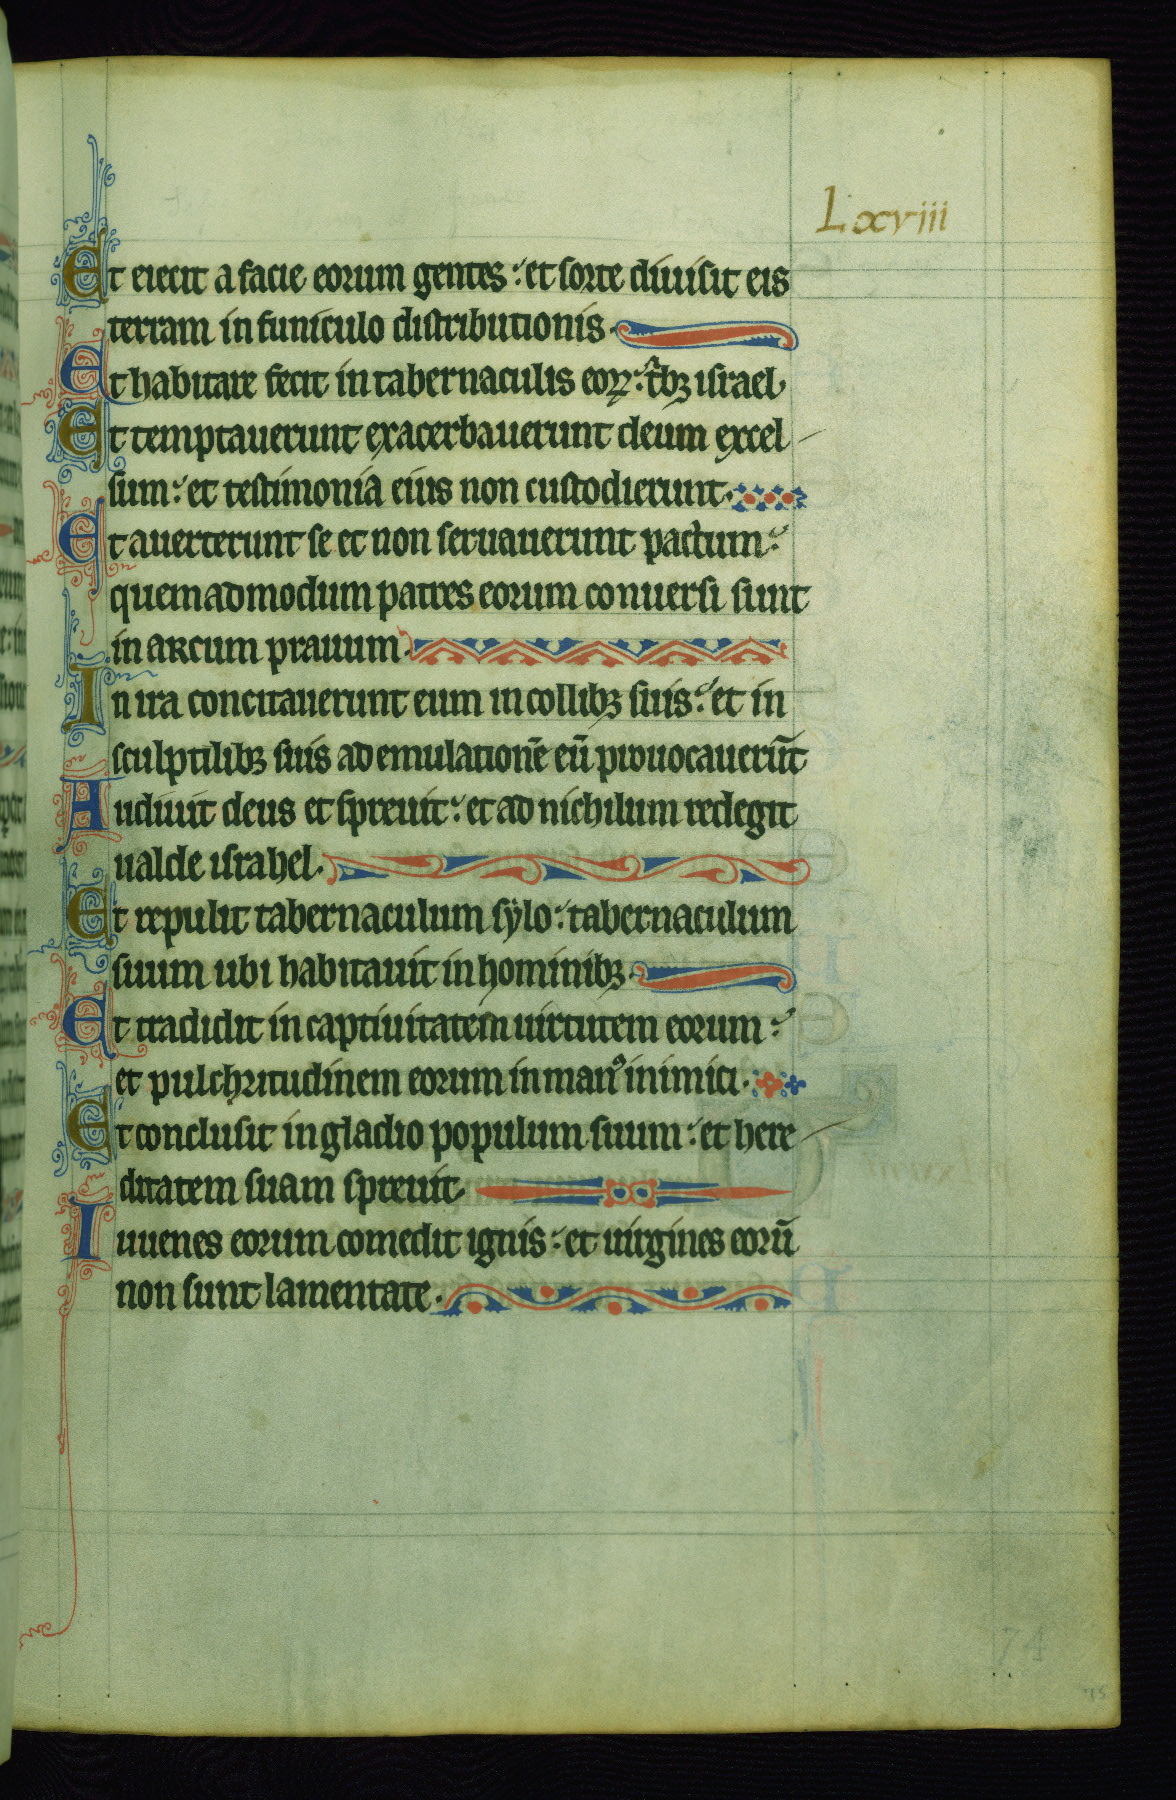 Lxviii
Et eiecit a facie eorum gentes: et sorte diuisit eis
terram in funiculo distributionis.
Et habitare fecit in tabernaculis eoꝝ: t̾bꝫ israel.
Et temptauerunt exacerbauerunt deum excel
sum: et testimonia eius non custodierunt.
Et auerterunt se et non seruauerunt pactum:
quemadmodum patres eorum conuersi sunt
in arcum prauum.
In ira concitauerunt eum in collibꝫ suis: et in
sculptilibꝫ suis ad emulationē eū prouocauerūt
Audiuit deus et spreuit: et ad nichilum redegit
ualde israhel.
Et repulit tabernaculum sẏlo: tabernaculum
suum ubi habitauit in hominibꝫ.
Et tradidit in captiuitatem uirtutem eorum:
et pulchritudinem eorum in manꝰ inimici.
Et conclusit in gladio populum suum: et here
ditatem suam spreuit.
Iuuenes eorum comedit ignis: et uirgines eorū
non sunt lamentate.
74
75